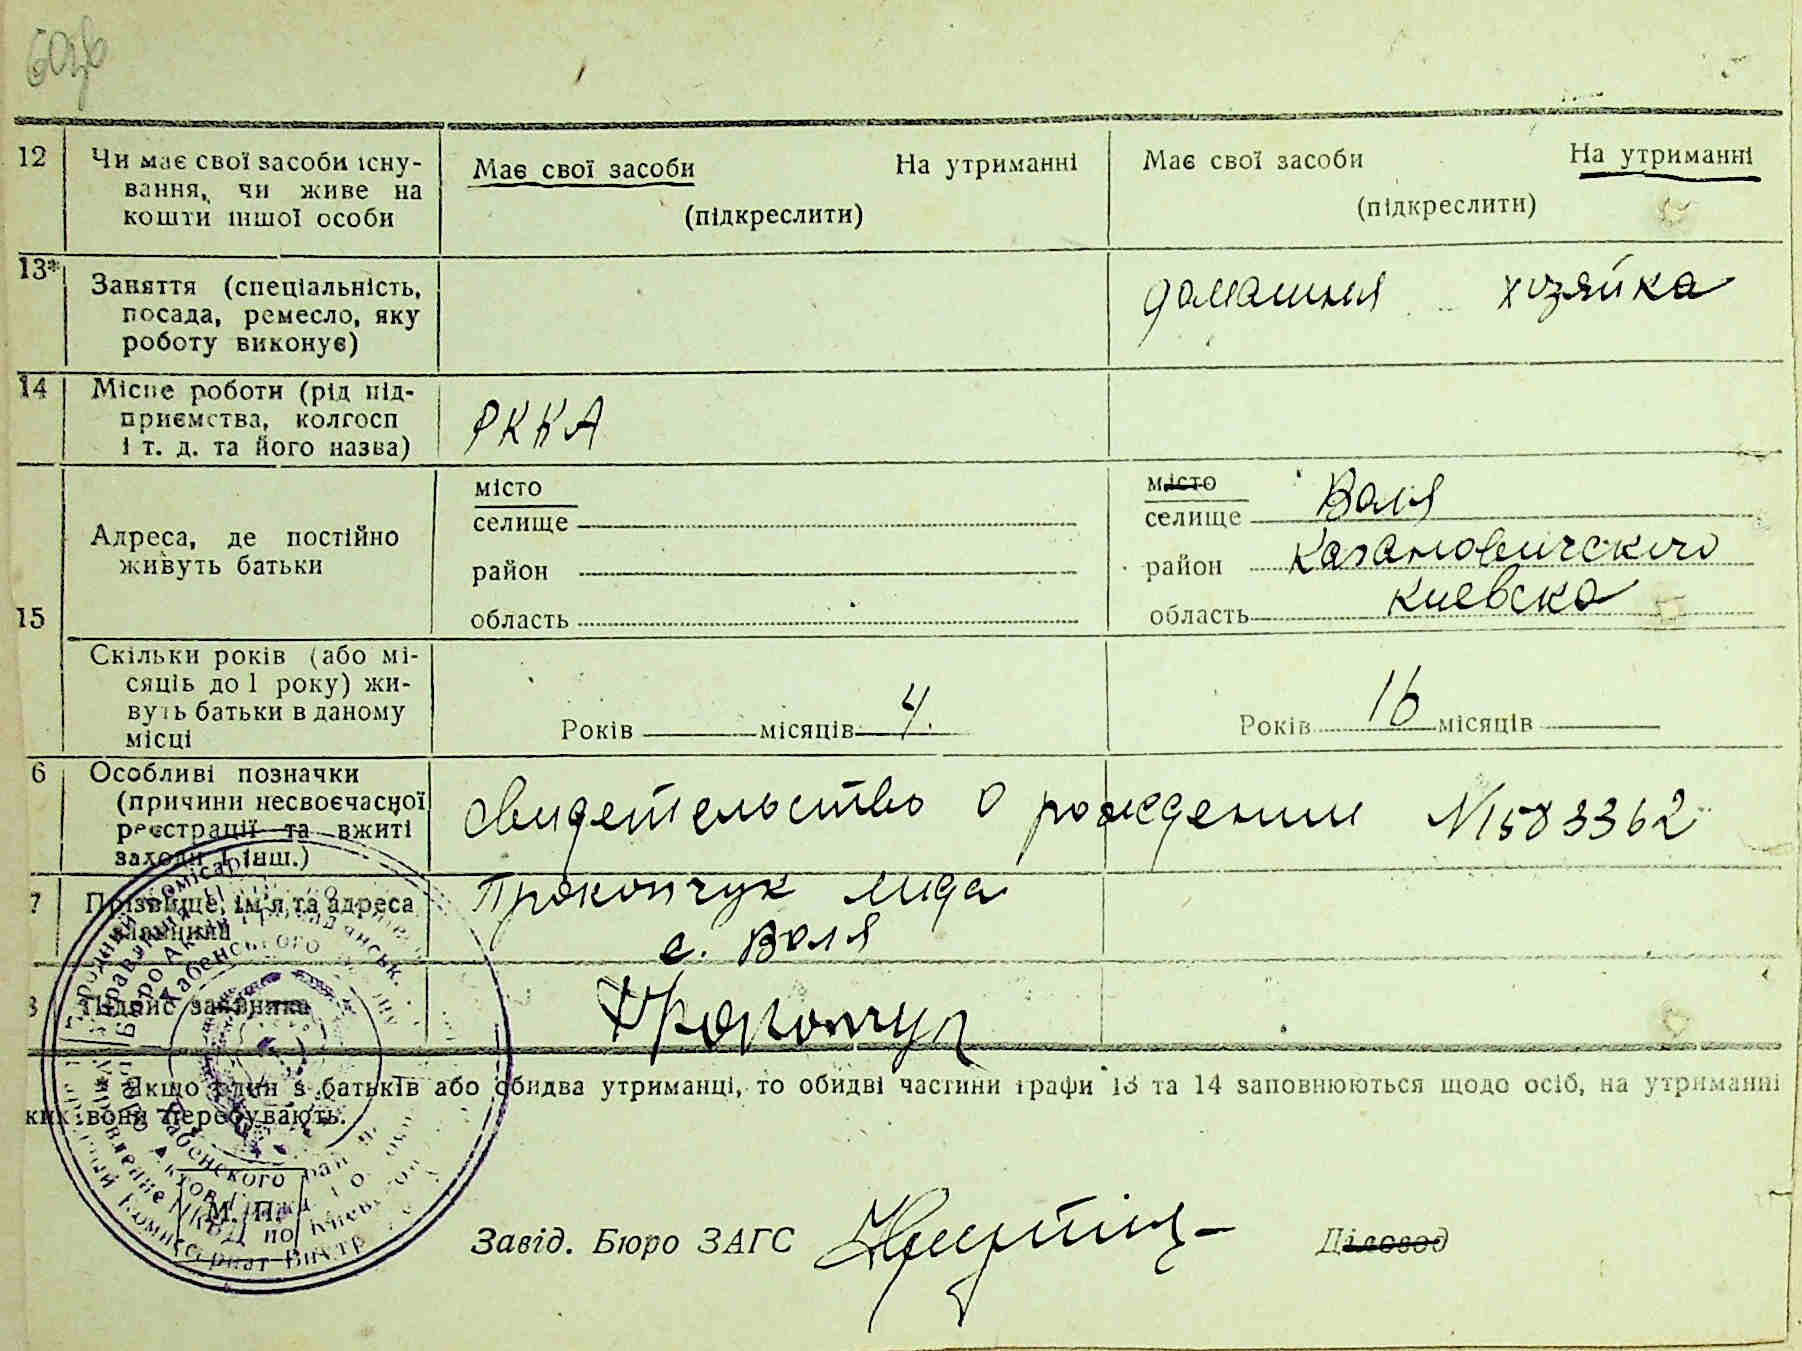 12 Чи має свої засоби існу-
вання, чи живе на
кошти іншої особи
Має свої засоби На утриманні
(підкреслити)
Має свої засоби На утриманні
(підкреслити)
13* Заняття (спеціальність,
посада, ремесло, яку
роботу виконує)
домашня хозяйка
14 Місце роботи (рід під-
приємства, колгосп
і т. д. та його назва)
РККА
15 Адреса, де постійно
живуть батьки
місто
селище
район
область
місто
селище Воля
район Кагановичского
область Киевска
Скільки років (або мі-
сяців до 1 року) жи-
вуть батьки в даному
місці
Років місяців 4.
Років 16 місяців
6 Особливі позначки
(причини несвоєчасної
реєстрації та вжиті
заходи і інш.)
Свидетельство о рождении №1583362
7 Прізвище, ім'я та адреса
Прокопчук Лида
с. Воля
8 Підпис заявника
Прокопчук
Якщо один з батьків або обидва утриманці, то обидві частини графи 13 та 14 заповнюються щодо осіб, на утриманні
ких вони перебувають.
М. П.
Завід. Бюро ЗАГС
Діловод